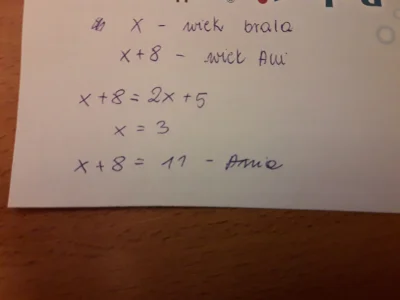 x - wiek brata
x+8 - wiek Ani
x+8=2x+5
x = 3
x+8 = 11 - Ania